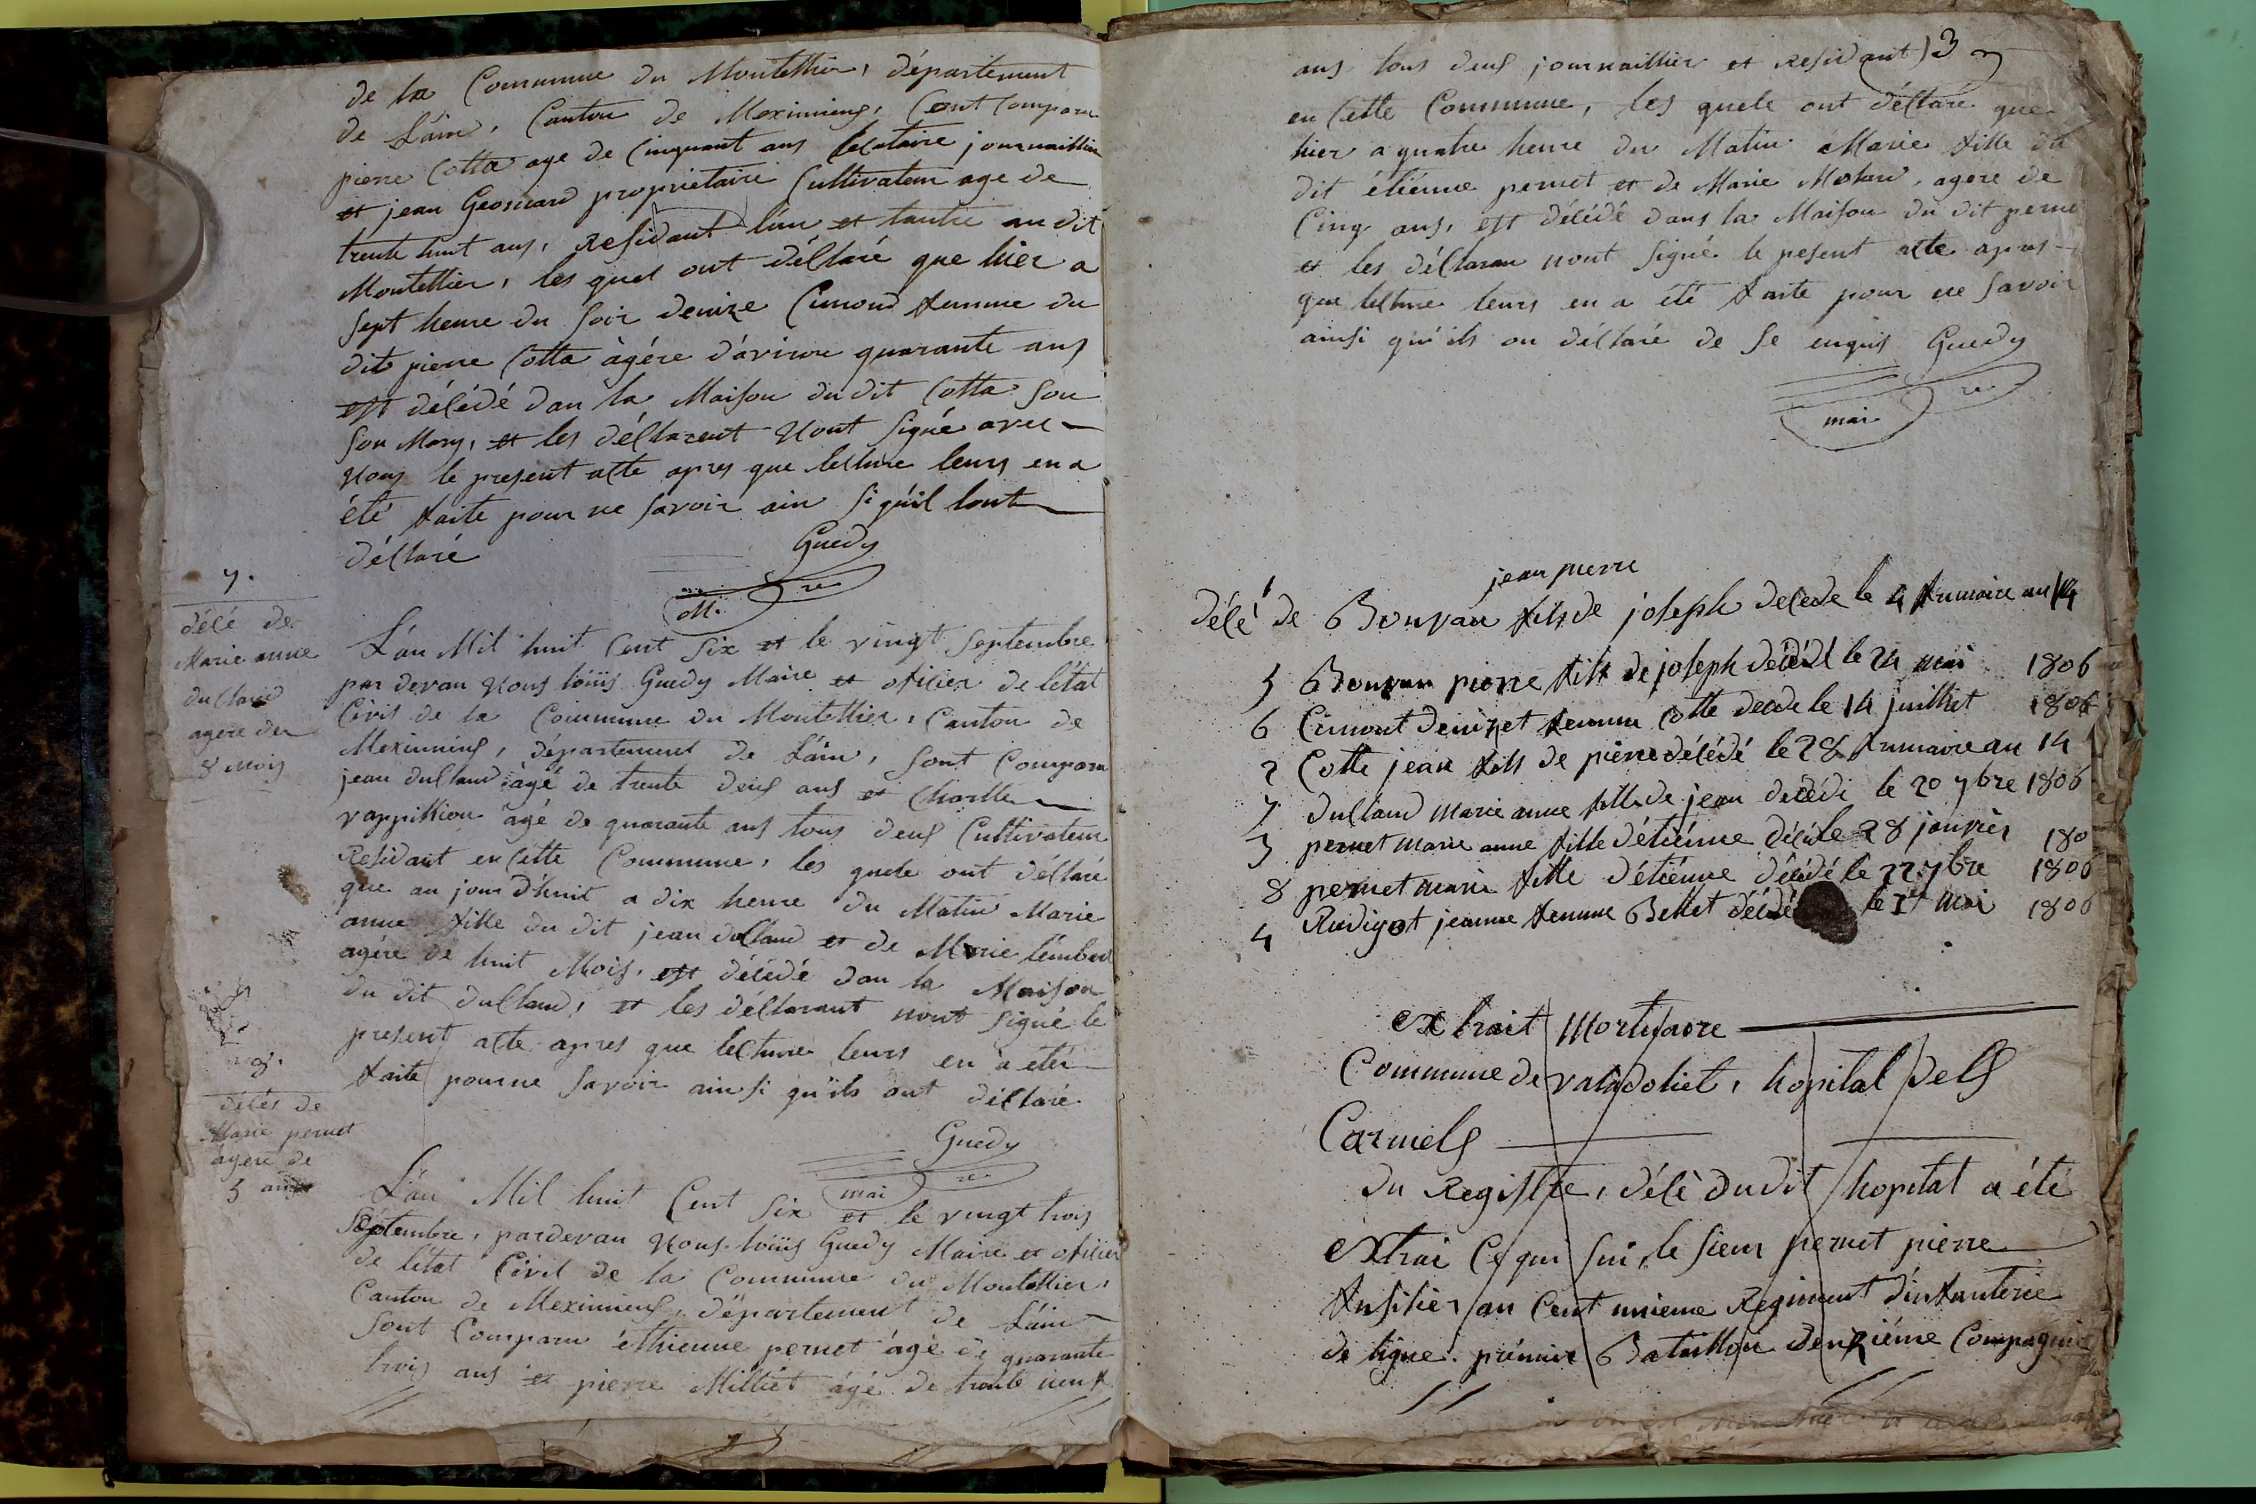 de la Commune du Montellier, département
de Láin, Canton de Meximieug, Cont Comparu
pierre Cotta age de Cinquant ans locataire journaillier
et jean propriétaire Cultivateur age de
trente huit ans, Residant lún et lautre au dit
Montellier, les quel ont déClaré que hier a
sept heure du soir denize Cimond femme du
dit pierre Cotta àgére dáviron quarante ans
est déCédé dan la Maison du dit Cotta son
son Mary, et les déClarent nont signé avec
nous le present acte apres que lecture leurs en a
été faite pour ne savoir ain si quíl lont
déClaré
Guedy
M. re
7.
déCé de
Marie anne
duClaud
agére de
8 Mois
Lán Mil huit Cent six et le vingt septembre
par devan nous loüis Guedy Maire et ofiCier de létat
Civil de la Commune du Montellier, Canton de
Meximieug, département de Láin, sont Comparu
jean duClaud àgé de trente deus ans et Charlle
rappillion àgé de quarante ans tous deus Cultivateur
Residant en Cette Commune, les quele ont déClaré
que au jour dhuit a dix heure du Matin Marie
anne fille du dit jean duClaud et de Marie
agére de huit Mois, est déCédé dan la Maison
du dit duClaud, et les déClarant nont signé le
present acte apres que lecture leurs en a été
faite pour ne savoir ainsi qu'ils ont déClaré
Guedy
mai re
8.
déCés de
Marie pernet
agére de
5 ans
Lán Mil huit Cent six et le vingt trois
septembre, pardevan nous loüis Guedy Maire et ofiCier
de létat Civil de la Commune du Montellier,
Canton de Meximieug, département de Láin
sont Comparu éthienne pernet àgé de quarante
trois ans et pierre Milliet àgé de trente neuf
3
ans tous deus journaillier et Residant
en Cette Commune, les quele ont déClaré que
hier a quatre heure du Matin Marie fille du
dit étiénne pernet et de Marie Molard, agere de
Cinq ans, est déCédé dans la Maison du dit perne
et les déClaran nont signé le pesent acte apres
que lecture leurs en a été faite pour ne savoir
ainsi qu'ils on déClaré de se enquis Guedy
mai re
jean pierre
déCé de 1 Bouvan fils de joseph déCédé le 4 frimaire an 14
5 Bouvan pierre fils de joseph déCédé le 24 mai 1806
6 Cimont denizet femme Cotte deCede le 14 juilliet 1806
2 Cotte jean fils de pierre déCédé le 28 frimaire an 14
7 duClaud marie anne fille de jean deCédé le 20 7bre 1806
3 pernet marie anne fille détiénne déCéde le 28 janvier 180
8 pernet marie fille détiénne déCédé le 22 7bre 1806
4 Rudigot jeanne femme Bellet déCédé le 1er mai 1806
extrait Mortuaore
Commune de valadoliet, hopital dels
Carmels
du Registre, déCè du dit hopital a été
extrai Ce qui sui, le sieur pernet pierre
fusilier au Cent unieme Regiment dínfanterie
de ligne. prémier Bataillon denziéme Compagnie